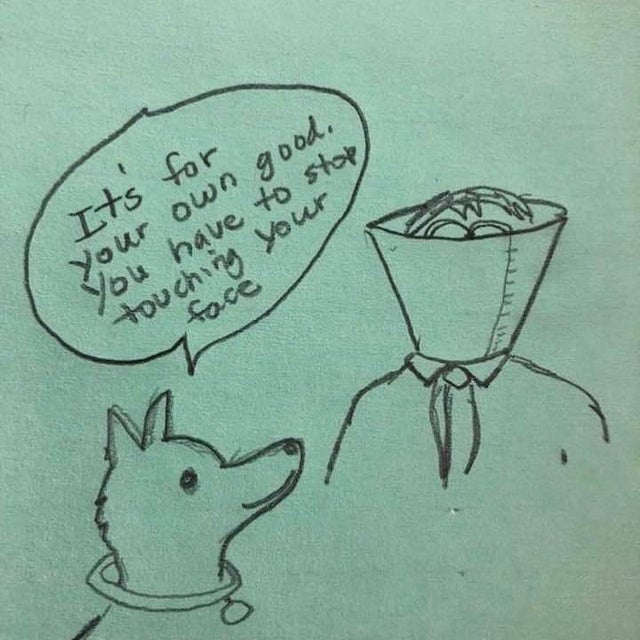 It's for
your own good.
You have to stop
touching your
face